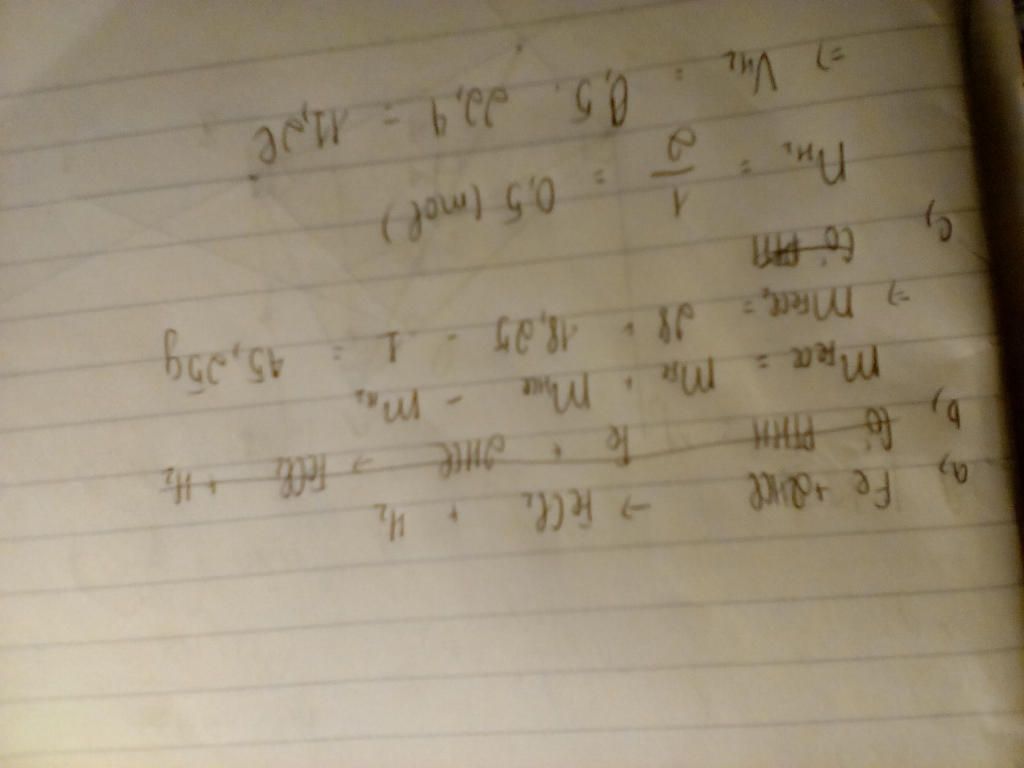 a, Fe + 2HCl → FeCl₂ + H₂
Có PTHH Fe + 2HCl → FeCl₂ + H₂
b, mFeCl = mFe + mHCl - mH₂
=> mFeCl₂ = 28 + 18,25 - 1 = 45,25g
Có PTH
c, nH₂ = 1/2 = 0,5 (mol)
=> VH₂ = 0,5 . 22,4 = 11,2l